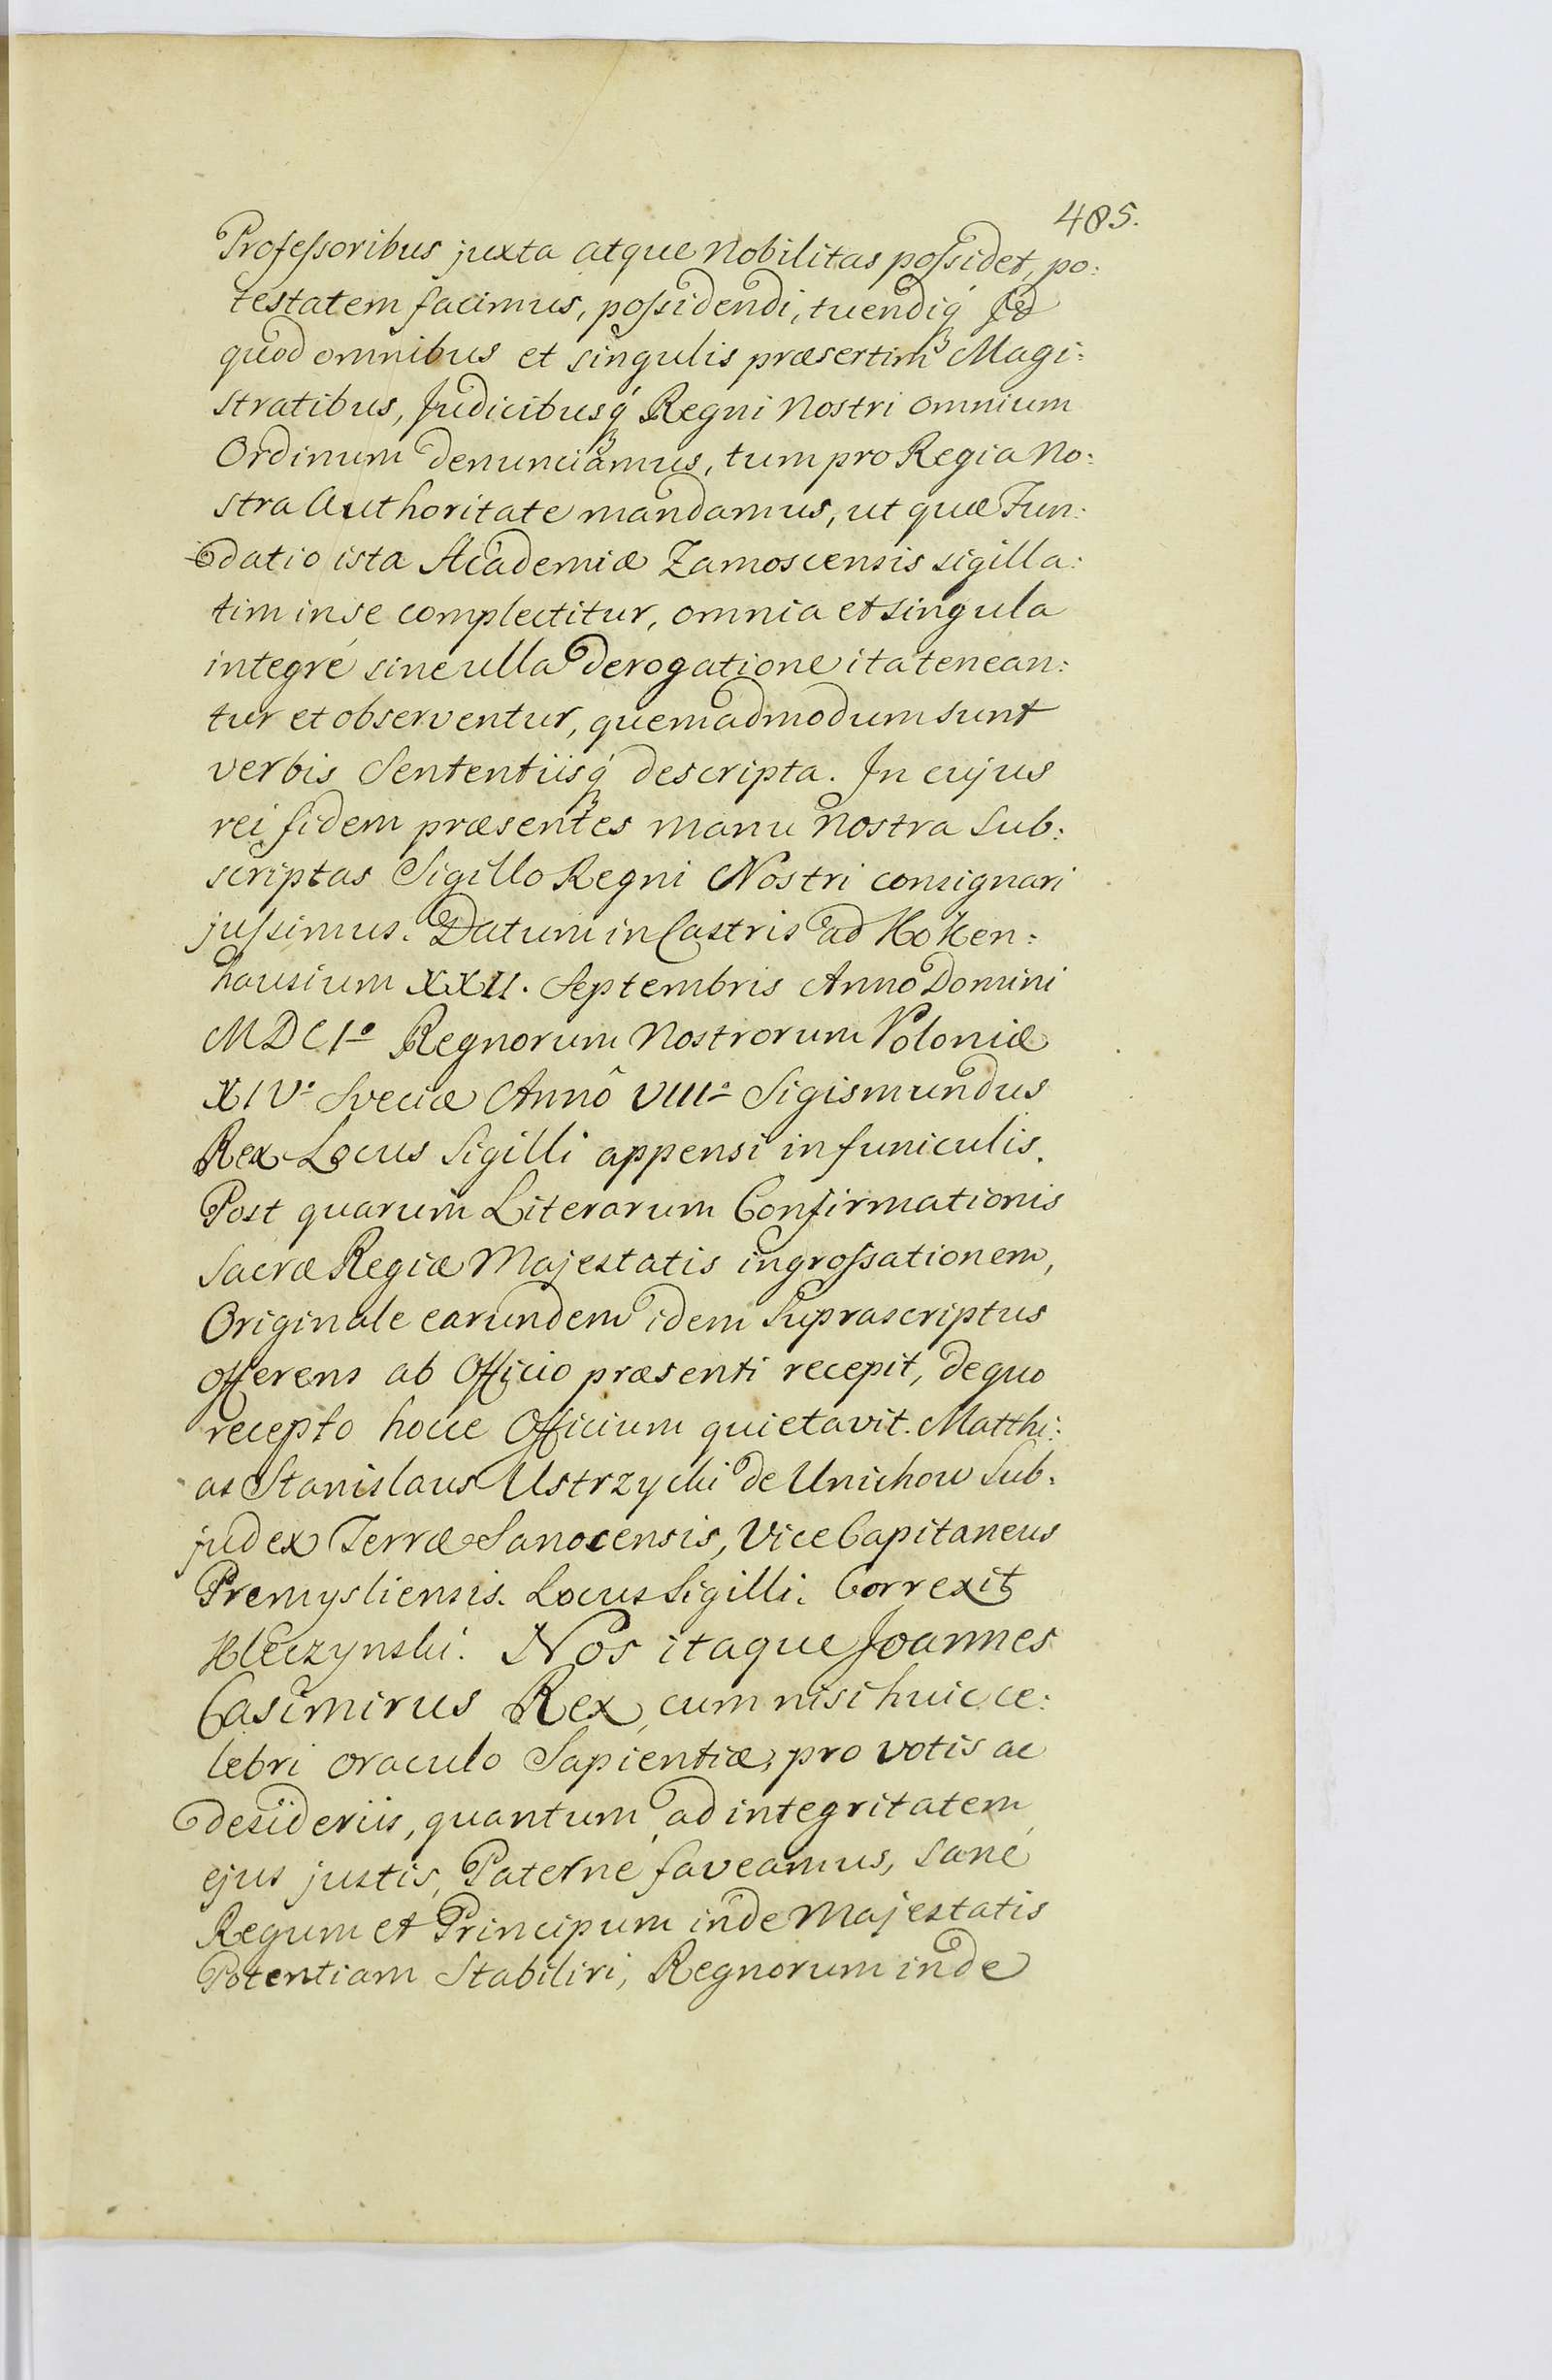 485.
Professoribus juxta atque Nobilitas possidet, po:
testatem facimus, possidendi, tuendiq́ Id
quod omnibus et singulis præsertim Magi:
stratibus, Judicibusq́ Regni Nostri omnium
Ordinum denunciamus, tum pro Regia No:
stra Authoritate mandamus, ut quæ Fun:
datio ista Academiæ Zamoscensis sigilla:
tim in se complectitur, omnia et singula
integré sine ulla derogatione ita tenean:
tur et observentur, quemadmodum sunt
verbis Sententiisq́ descripta. In cujus
rei fidem præsentes manu Nostra Sub:
scriptas Sigillo Regni Nostri consignari
jussimus. Datum in Castris ad Koken:
hausium XXII. Septembris Anno Domini
MDCIo Regnorum Nostrorum Poloniæ
XIVo Sveciæ Annô VIIIo Sigismundus
Rex Locus Sigilli appensi in funiculis.
Post quarum Literarum Confirmationis
Sacræ Regiæ Majestatis ingrossationem,
Originale earundem idem Suprascriptus
offerens ab Officio præsenti recepit, de quo
recepto hocce Officium quietavit. Matthi:
as Stanislaus Ustrzycki de Unichow Sub:
judex Terræ Sanocensis, Vice Capitaneus
Premysliensis. Locus Sigilli. Correxit
Kleczynski. Nos itaque Joannes
Casimirus Rex, cum nisi huic ce:
lebri oraculo Sapientiæ, pro votis ac
desideriis, quantum ad integritatem
ejus justis, Paterné faveamus, sané
Regum et Principum inde Majestatis
Potentiam Stabiliri, Regnorum inde